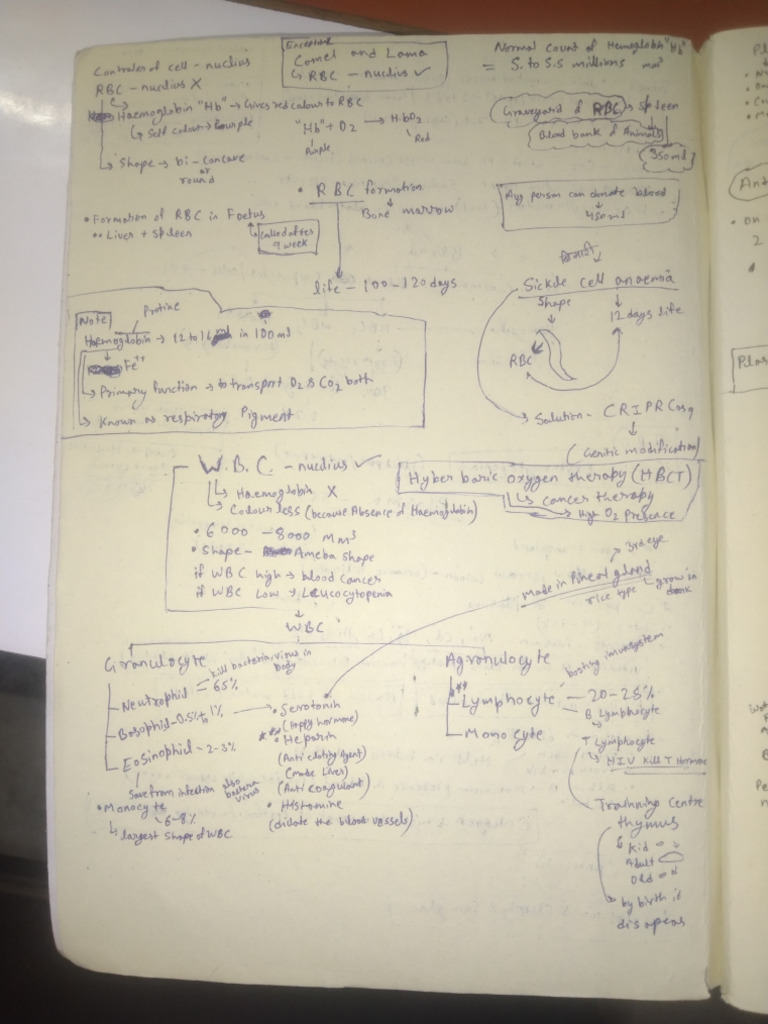 Controler of cell - nuclius
RBC - nuclius X
Haemoglobin "Hb" → Gives red calour to RBC
↳ Self colour → Purple
"Hb" + O2 → HbO2
Purple
Red
↳ Shape → bi - concave
or
round
Exception
Camel and Lama
↳ RBC - nuclius ✓
Normal count of Hemoglobin "Hb"
= 5. to 5.5 millions mm³
Graveyard of RBC → Spleen
Blood bank of Animals
350ml
Avg person can donate blood
↓
450ml
• RBC formation
↓
Bone marrow
life - 100 - 120 days
• Formation of RBC in Foetus
•• Liver + Spleen
called after
9 week
Note
Protine
Haemoglobin → 12 to 16 in 100ml
Fe²⁺
↳ Primary function → to transport O2 & CO2 both
↳ Known as respiratory Pigment
Sickle cell anaemia
Shape
12 days life
RBC
Solution - CRIPR Cas9
↓
(Genitic modification)
W.B.C. - nuclius ✓
↳ Haemoglobin X
↳ Colourless (because Absence of Haemoglobin)
• 6000 - 8000 Mm³
• Shape - Ameba shape
if WBC high → blood cancer
if WBC Low → Leucocytopenia
Hyber baric oxygen therapy (HBCT)
↳ cancer therapy
→ High O2 Presence
→ 3rd eye
Made in Pineal gland
rice type
grow in
dark
WBC
Granulocyte
kill bacteria, virus in
body
Neutrophil = 65%
Bosophil - 0.5% to 1%
Eosinophiel - 2-3%
Save from infection also
bacteria
virus
• Monocyte
↳ 6-8%
↳ largest shape of WBC
• Serotonin
(Happy hormone)
** • Heparin
(Anti cloting Agent)
(made Liver)
(Anti coagulant)
• Histamine
(dilate the blood vessels)
Agranulocyte
bosting imunsystem
** Lymphocyte — 20-28%
B Lymphocyte
T Lymphocyte
HIV kill T Hormone
Monocyte
Trainning Centre
thymus
Kid
Adult
Old
by birth it
disapears